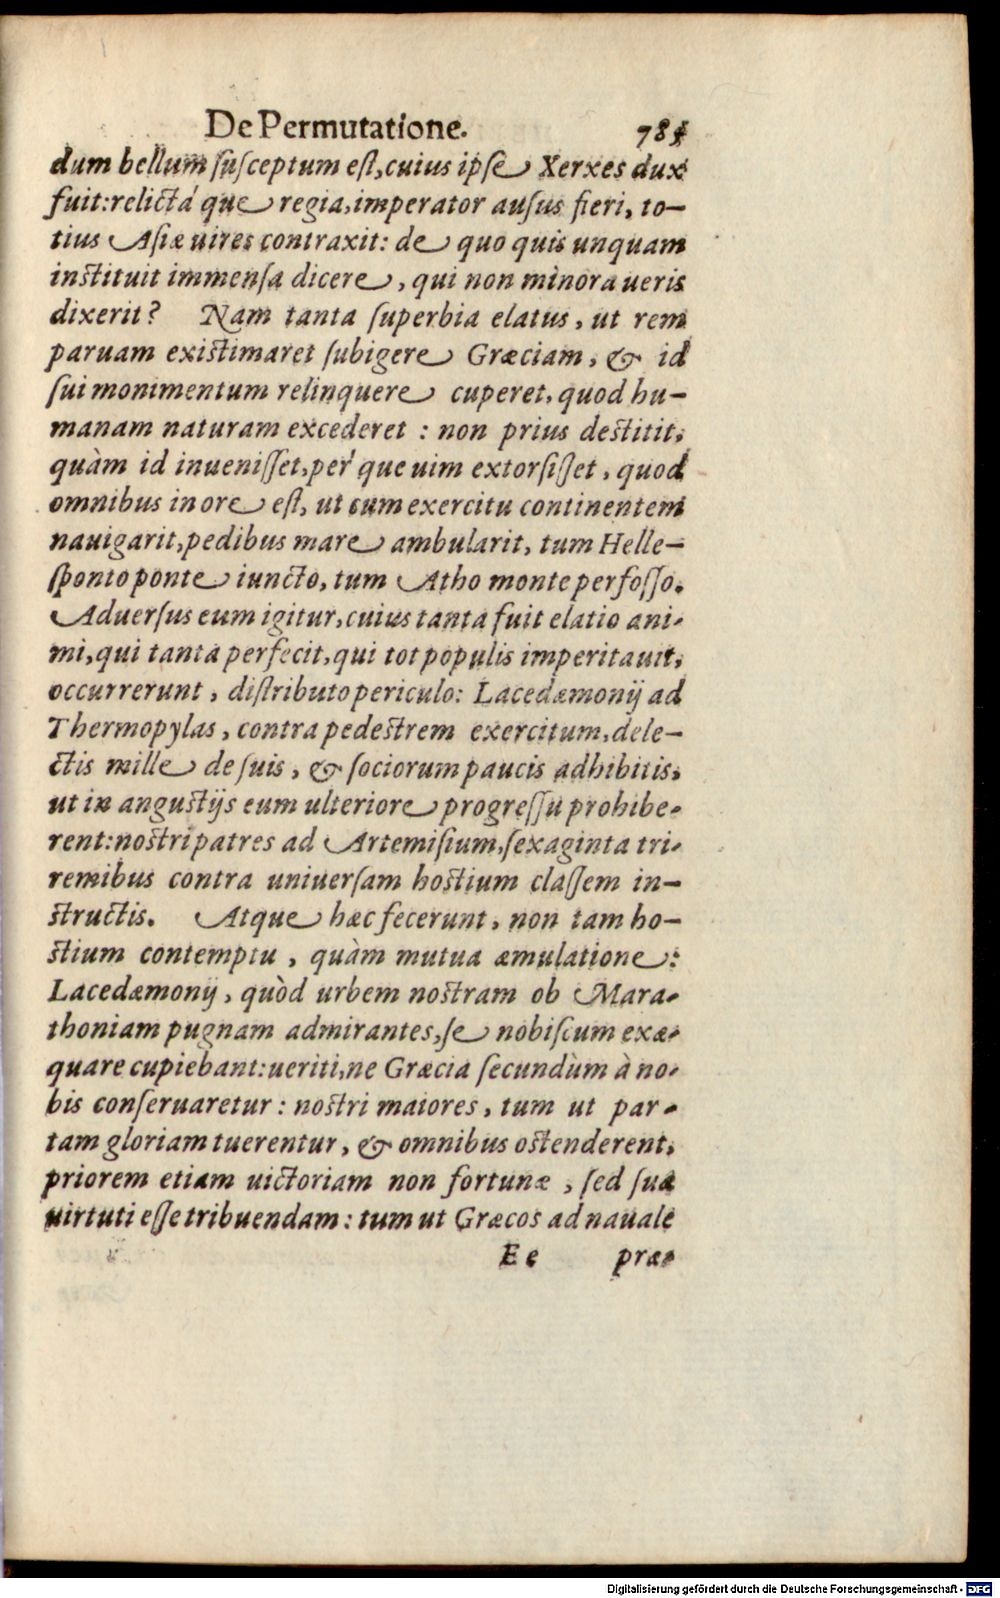 De Permutatione. 785
dum bellum susceptum est, cuius ipse Xerxes dux
fuit: relictá que regia, imperator ausus fieri, to-
tius Asiæ uires contraxit: de quo quis unquam
instituit immensa dicere, qui non minora ueris
dixerit? Nam tanta superbia elatus, ut rem
paruam existimaret subigere Græciam, & id
sui monimentum relinquere cuperet, quod hu-
manam naturam excederet: non prius destitit,
quàm id inuenisset, per que uim extorsisset, quod
omnibus in ore est, ut cum exercitu continentem
nauigarit, pedibus mare ambularit, tum Helle-
sponto ponte iuncto, tum Atho monte perfosso.
Aduersus eum igitur, cuius tanta fuit elatio ani-
mi, qui tanta perfecit, qui tot populis imperitauit,
occurrerunt, distributo periculo: Lacedæmonij ad
Thermopylas, contra pedestrem exercitum, dele-
ctis mille de suis, & sociorum paucis adhibitis,
ut in angustijs eum ulteriore progressu prohibe-
rent: nostri patres ad Artemisium, sexaginta tri-
remibus contra uniuersam hostium classem in-
structis. Atque hæc fecerunt, non tam ho-
stium contemptu, quàm mutua æmulatione:
Lacedæmonij, quòd urbem nostram ob Mara-
thoniam pugnam admirantes, se nobiscum exæ-
quare cupiebant: ueriti, ne Græcia secundùm à no-
bis conseruaretur: nostri maiores, tum ut par-
tam gloriam tuerentur, & omnibus ostenderent,
priorem etiam uictoriam non fortunæ, sed suæ
uirtuti esse tribuendam: tum ut Græcos ad nauale
Ee præ-
Digitalisierung gefördert durch die Deutsche Forschungsgemeinschaft - DFG